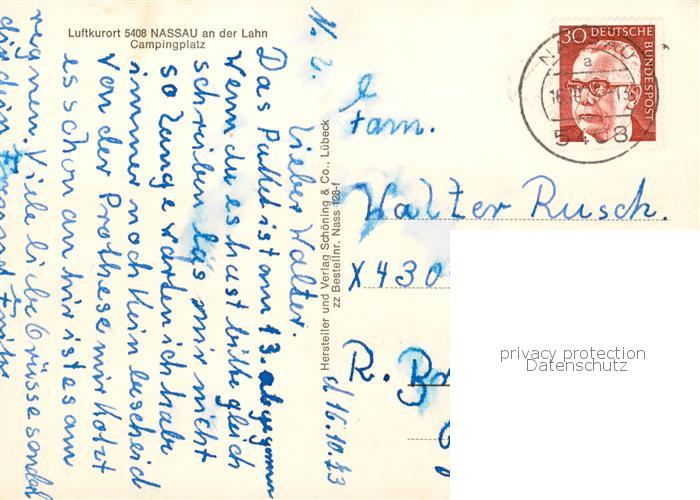 Luftkurort 5408 NASSAU an der Lahn
Campingplatz
d 16.10.73
Lieber Walter.
Das Paket ist am 13. abgegangen
wenn du es hast bitte gleich
schreiben las mir nicht
so lange warten ich habe
immer noch kein bescheid
von der Prothese mir kotzt
es schon an hir ist es am
regnen. Viele liebe Grüsse sendet
dir dein Freund Fritz
Hersteller und Verlag Schöning & Co., Lübeck
zz Bestellnr. Nass 128-f
30 DEUTSCHE
BUNDESPOST
a
5408
Fam.
Walter Rusch.
X 430
R.
privacy protection
Datenschutz